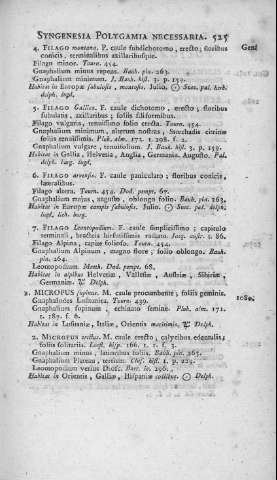 SYNGENESIA POLYGAMIA NECESSARIA. 525
4. FILAGO montana. F. caule subdichotomo, erecto; floribus
conicis, terminalibus axillaribusque.
Filago minor. Tourn. 454.
Gnaphalium minus repens. Bauh. pin. 263.
Gnaphalium minimum. J. Bauh. hist. 3. p. 159.
Habitat in Europæ sabulosis, montosis. Julio. ☉ Succ. pal. herb.
delph. lugd.
5. FILAGO Gallica. F. caule dichotomo, erecto; floribus
subulatis, axillaribus; foliis filiformibus.
Filago vulgaris, tenuissimo folio erecta. Tourn. 454.
Gnaphalium minimum, alterum nostras, Stoechadis citrinæ
foliis tenuissimis. Pluk. alm. 172. t. 298. f. 2.
Gnaphalium vulgare, tenuifolium. J. Bauh. hist. 3. p. 159.
Habitat in Gallia, Helvetia, Anglia, Germania. Augusto. Pal.
delph. lugd.
6. FILAGO arvensis. F. caule paniculato; floribus conicis,
lateralibus.
Filago altera. Tourn. 454. Dod. pempt. 67.
Gnaphalium majus, angusto, oblongo folio. Bauh. pin. 263.
Habitat in Europæ campis sabulosis. Julio. ☉ Succ. pal. delph.
7. FILAGO Leontopodium. F. caule simplicissimo; capitulo
terminali, bracteis hirsutissimis radiato. Jacq.
Filago Alpina, capite folioso. Tourn. 454.
Gnaphalium Alpinum, magno flore; folio oblongo. Bauh.
pin. 264.
Leontopodium. Matth. Dod. pempt. 68.
Habitat in alpibus Helvetiæ, Vallesiæ, Austriæ, Sibiriæ,
Germaniæ. Delph.
MICROPUS supinus. M. caule procumbente, foliis geminis.
1080.
Gnaphalodes Lusitanica. Tourn. 439.
Gnaphalium supinum, echinato semine. Pluk. alm. 171.
t. 187. f. 6.
Habitat in Lusitaniæ, Italiæ, Orientis maritimis. Delph.
2. MICROPUS erectus. M. caule erecto, calycibus edentulis;
foliis solitariis. Loefl. hisp. 166. t. 1. f. 3.
Gnaphalium minus, latioribus foliis. Bauh. pin. 263.
Gnaphalium Plateau, tertium. Clus. hist. 1. p. 329.
Leontopodium verius Diosc. Barr. Ic. 296.
Habitat in Orientis, Galliæ, Hispaniæ collibus. ☉ Delph.